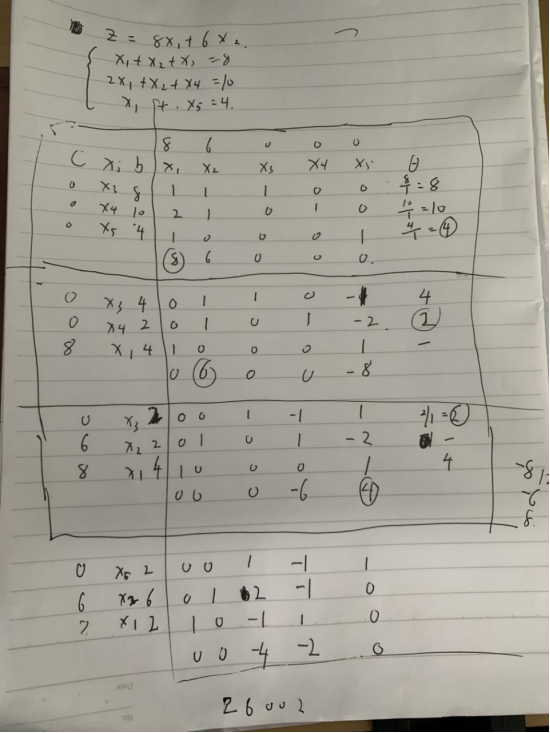 Z = 8x₁ + 6x₂.
x₁ + x₂ + x₃ = 8
2x₁ + x₂ + x₄ = 10
x₁ + x₅ = 4.
8 6 0 0 0
C xⱼ b x₁ x₂ x₃ x₄ x₅ θ
0 x₃ 8 1 1 1 0 0 8/1 = 8
0 x₄ 10 2 1 0 1 0 10/1 = 10
0 x₅ 4 1 0 0 0 1 4/1 = 4
8 6 0 0 0.
0 x₃ 4 0 1 1 0 -1 4
0 x₄ 2 0 1 0 1 -2 2
8 x₁ 4 1 0 0 0 1 -
0 6 0 0 -8
0 x₃ 2 0 0 1 -1 1 2/1 = 2
6 x₂ 2 0 1 0 1 -2 -
8 x₁ 4 1 0 0 0 1 4
0 0 0 -6 4
-6
8.
0 x₅ 2 0 0 1 -1 1
6 x₂ 6 0 1 2 -1 0
x₁ 2 1 0 -1 1 0
0 0 -4 -2 0
2 6 0 0 2